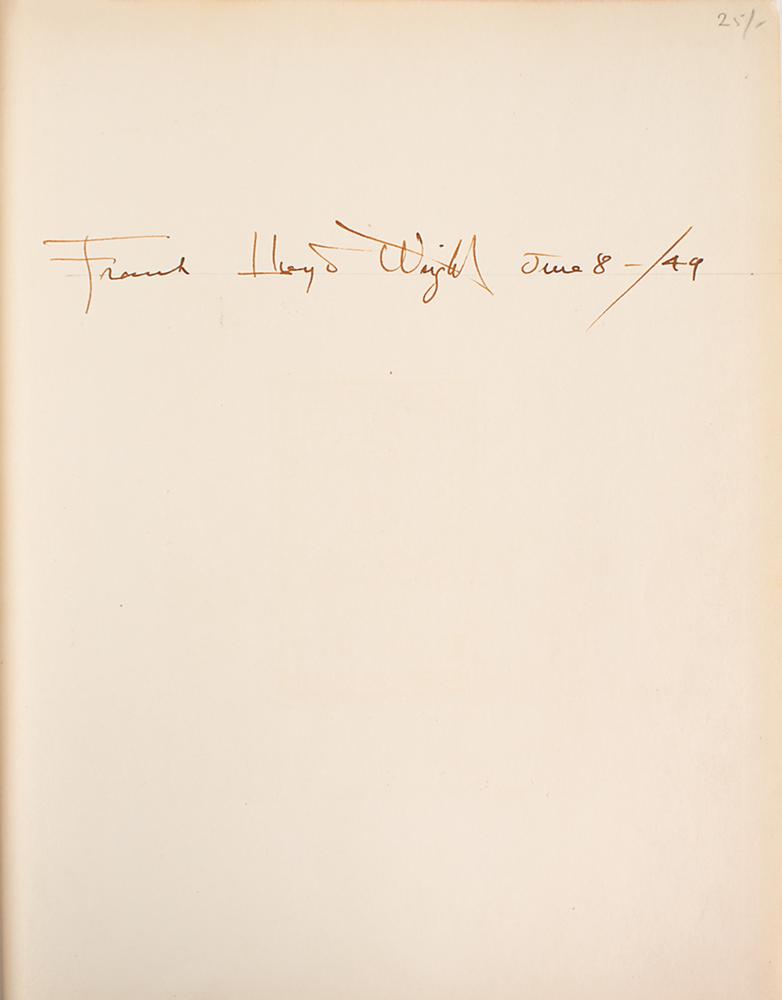 25/-
Frank Lloyd Wright June 8 - /49